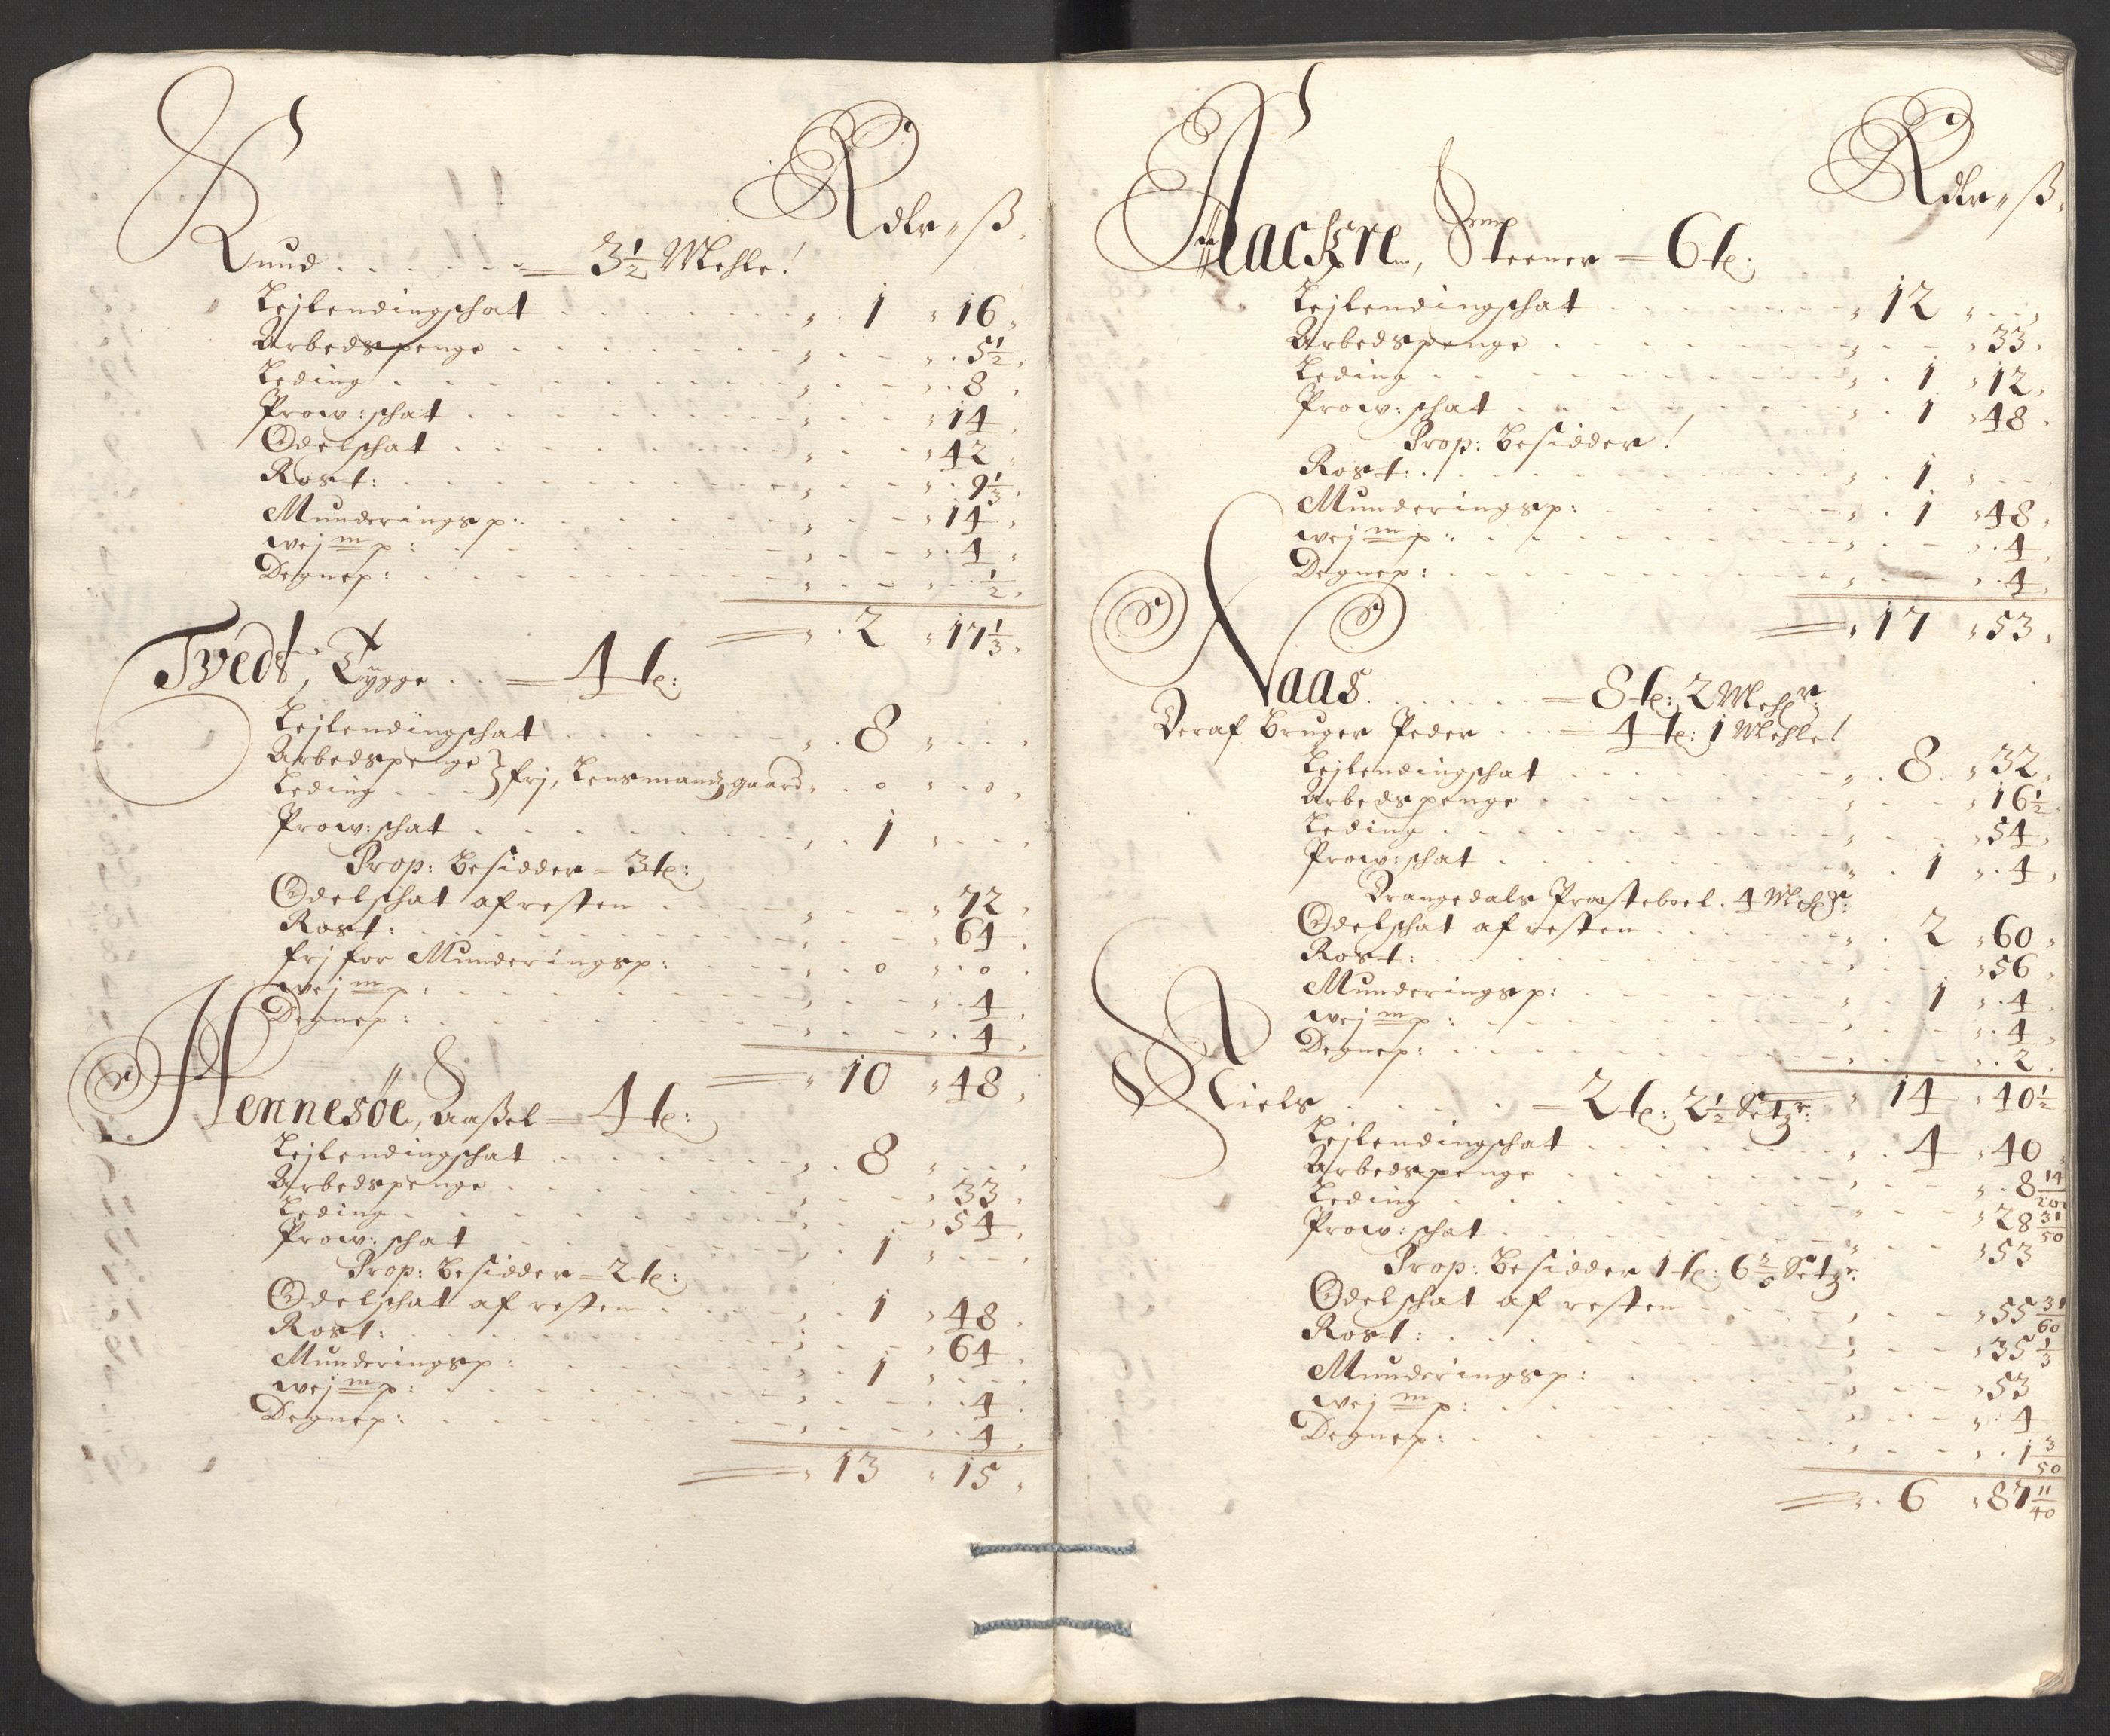 Rdlr „ ß.
Knud . . . . . . = 3½ Mehle!
Lejlendingschat . . . „ . 1 „ 16 „
Arbedspenge . . . „ . - - „ . 5½ „
Leding . . . „ . - - „ . 8 „
Prow: schat . . . „ . - - „ 14 „
Odelschat . . . „ . - - „ 42 „
Rost: . . . „ . - - „ . 9⅓ „
Munderingsp: . . . „ . - - „ 14 „
wej m p: . . . „ . - - „ . 4 „
Degnep: . . . „ . - - „ . . ½ „
= „ . 2 „ 17⅓ „
Tvedt, Tygge . . = 4 t:
Lejlendingschat . . . „ . 8 „ . . . „
Arbedspenge } frj, Lensmandsgaard „ . o „ . o „
Leding . . .
Prow: schat . . . „ . 1 „ - - - „
Prop: Besidder = 3 t:
Odelschat af resten . . . „ . - - „ 72 „
Rost: . . . „ . - - „ 64 „
frj for Munderingsp: . . . „ . o „ . o .
wej m p: . . . „ . - - „ . 4 „
Degnep: . . . „ . - - „ . 4 „
= „ 10 „ 48 „
Hennesøe, Aaßel = 4 t:
Lejlendingschat . . . „ . 8 „ . . . „
Arbedspenge . . . „ . - - „ 33 „
Leding . . . „ . - - „ 54 „
Prow: schat . . . „ . 1 „ - - - „
Prop: Besidder = 2 t:
Odelschat af resten . . . „ . 1 „ 48 „
Rost: . . . „ . - - „ 64 „
Munderingsp: . . . „ . 1 „ - - - „
wej m p: . . . „ . - - „ . 4 „
Degnep: . . . „ . - - „ . 4 „
= „ 13 „ 15 „
Rdlr „ ß.
Aackre, Steener = 6 t:
Lejlendingschat . . . „ 12 „ . . . „
Arbedspenge . . . „ . - - „ 33 „
Leding . . . „ . 1 „ 12 „
Prow: schat . . . „ . 1 „ 48 „
Prop: Besidder!
Rost: . . . „ . 1 „ - - -
Munderingsp: . . . „ . 1 „ 48 „
wej m p: . . . „ . - - „ . 4 „
Degnep: . . . „ . - - „ . 4 „
= „ 17 „ 53 „
Naas . . . . . . = 8 t: 2 Mehlr:
Deraf Bruger Peder . . . = 4 t: 1 Mehle!
Lejlendingschat . . . „ . 8 „ 32 „
Arbedspenge . . . „ . - - „ 16½ „
Leding . . . „ . - - „ 54 „
Prow: schat . . . „ . 1 „ . 4 „
Drangedals Præsteboel . 4 Mehlr:
Odelschat af resten . . . „ . 2 „ 60 „
Rost: . . . „ . - - „ 56 „
Munderingsp: . . . „ . 1 „ . 4 „
wej m p: . . . „ . - - „ . 4 „
Degnep: . . . „ . - - „ . 2 „
= „ 14 „ 40½
Niels . . . . = 2 t: 2½ Setgr:
Lejlendingschat . . . „ . 4 „ 40 „
Arbedspenge . . . „ . - - „ . 8 14/20
Leding . . . „ . - - „ 28 31/50
Prow: schat . . . „ . - - „ 53
Prop: Besidder 1 t: 6⅔ Setgr:
Odelschat af resten . . . „ . - - „ 55 31/60
Rost: . . . „ . - - „ 35⅓
Munderingsp: . . . „ . - - „ 53
wej m p: . . . „ . - - „ . 4
Degnep: . . . „ . - - „ . 1 3/50
= „ . 6 „ 87 11/40